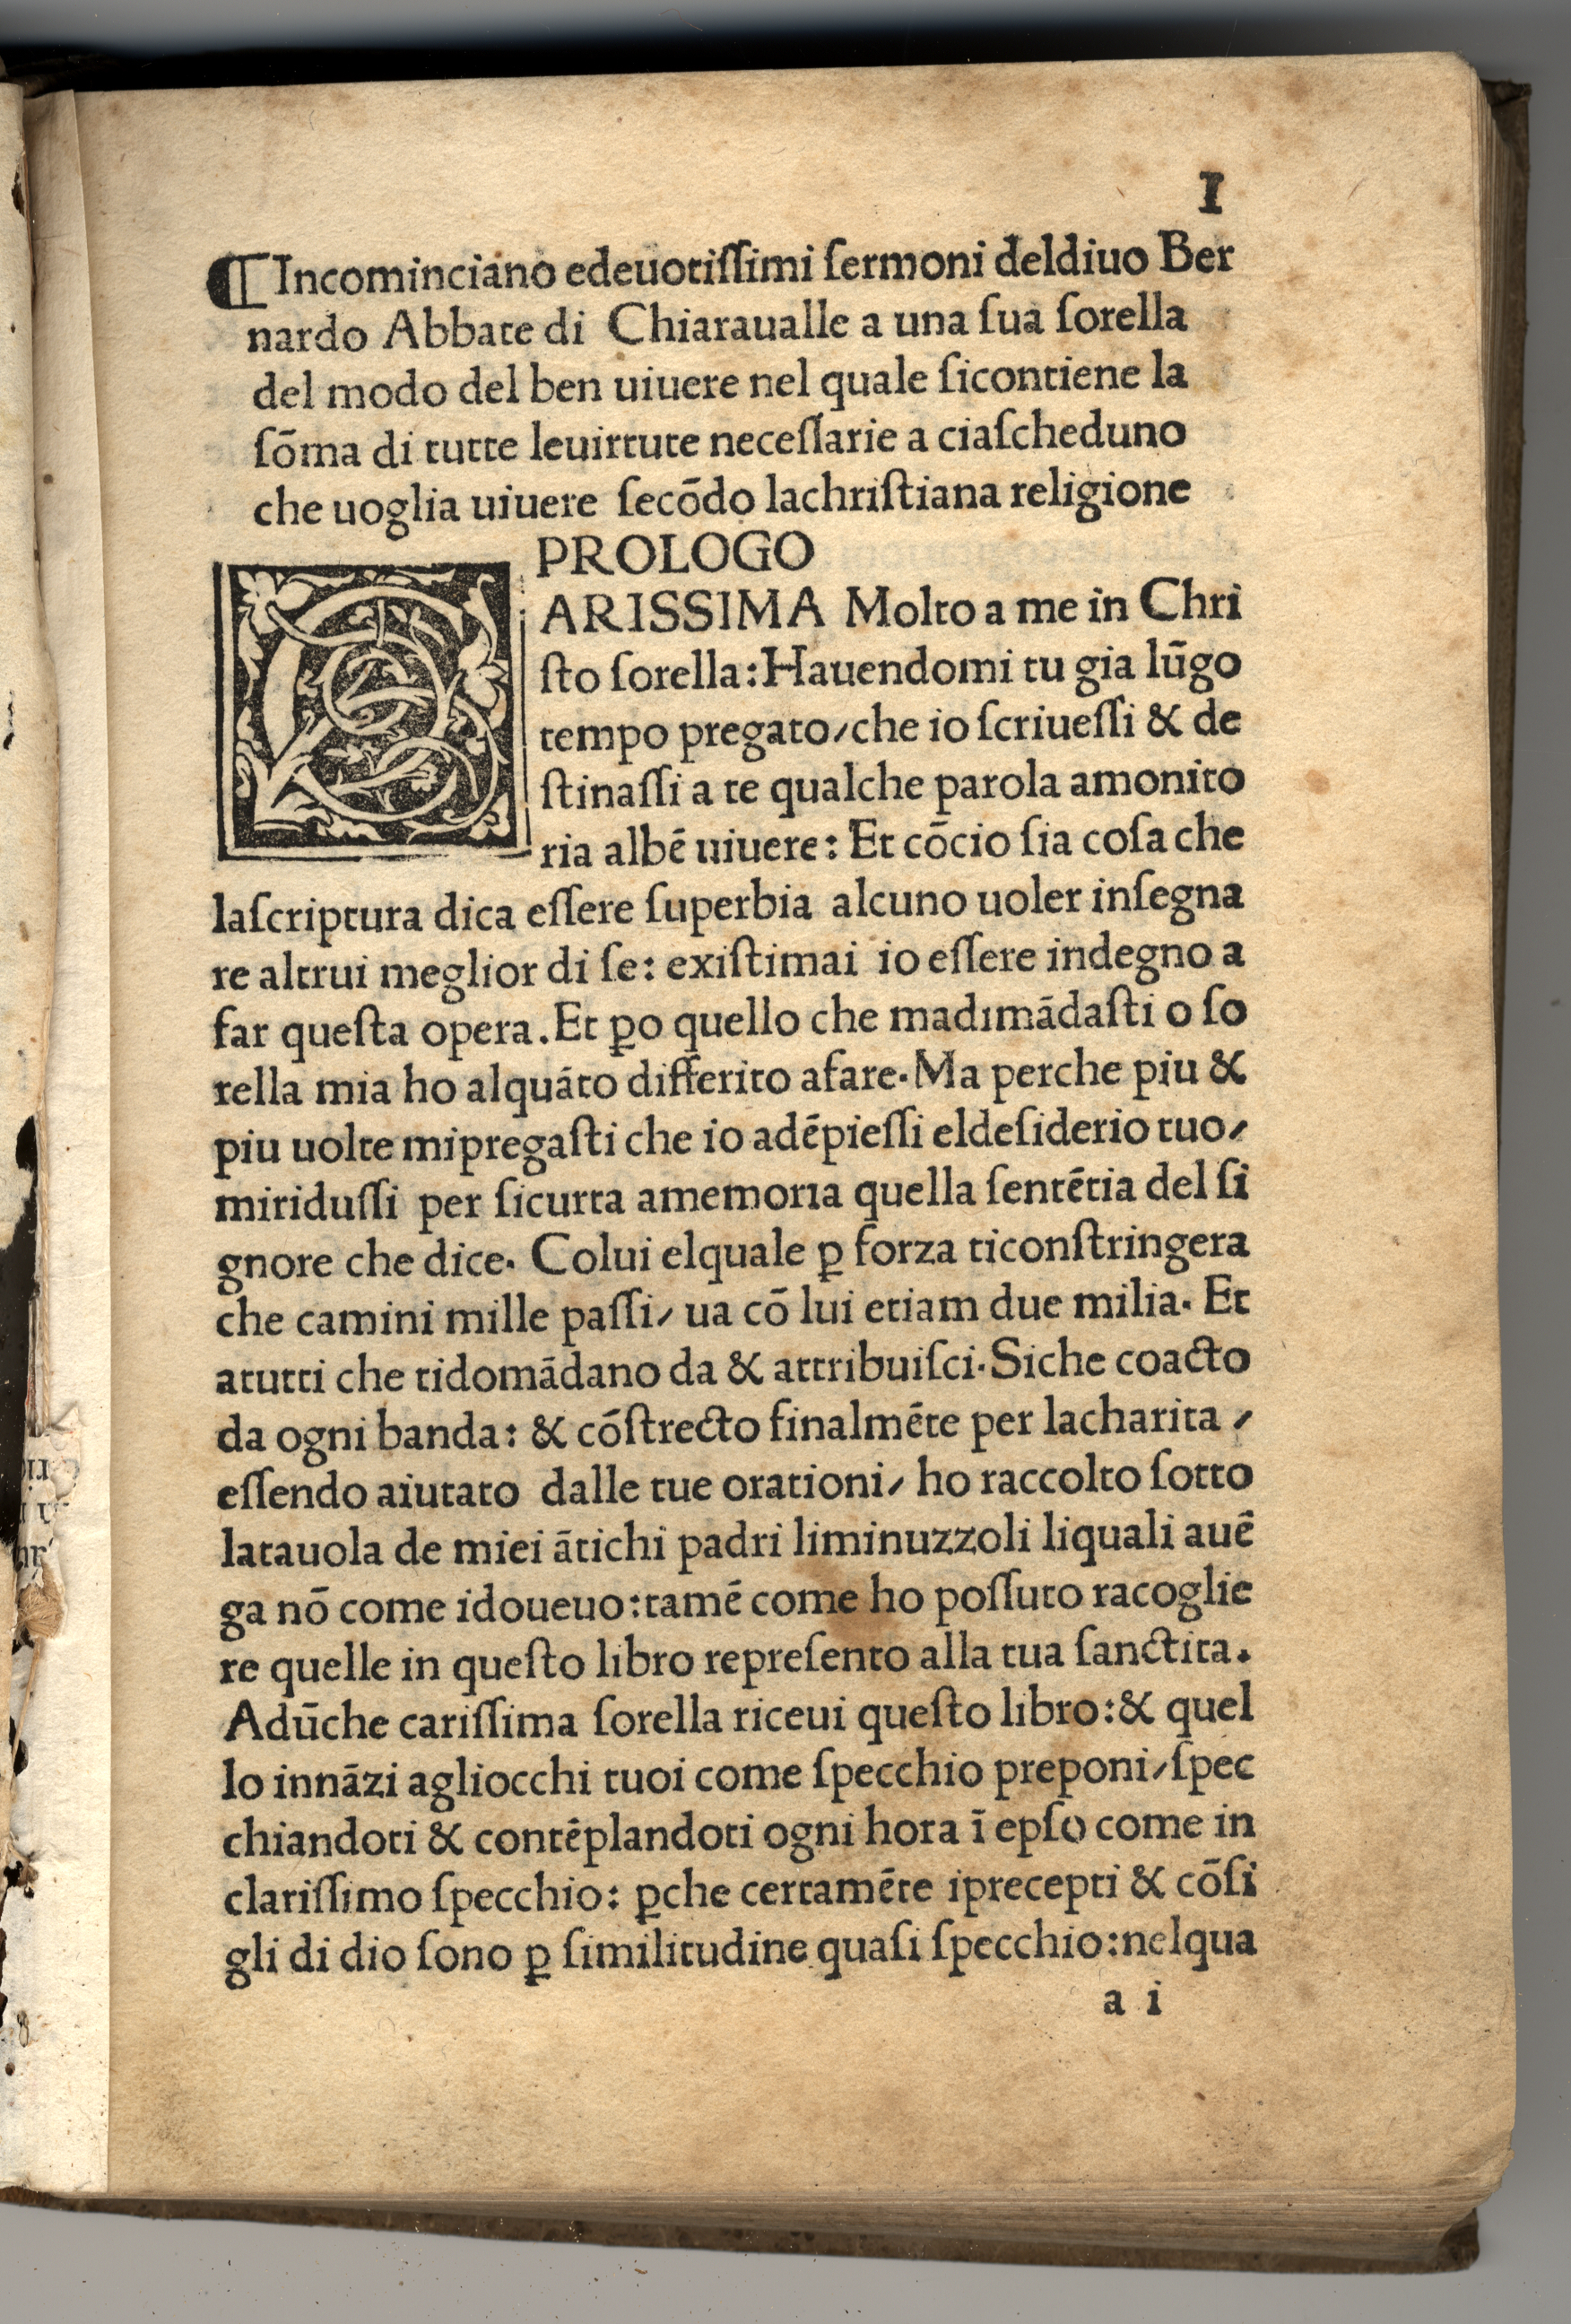 I
¶ Incominciano edeuotiſſimi ſermoni deldiuo Ber
nardo Abbate di Chiaraualle a una ſua ſorella
del modo del ben uiuere nel quale ſicontiene la
ſōma di tutte leuirtute neceſſarie a ciaſcheduno
che uoglia uiuere ſecōdo lachriſtiana religione
PROLOGO
ARISSIMA Molto a me in Chri
ſto ſorella: Hauendomi tu gia lūgo
tempo pregato/che io ſcriueſſi & de
ſtinaſſi a te qualche parola amonito
ria albē uiuere: Et cōcio ſia coſa che
laſcriptura dica eſſere ſuperbia alcuno uoler inſegna
re altrui meglior di ſe: exiſtimai io eſſere indegno a
far queſta opera. Et ꝑo quello che madimādaſti o ſo
rella mia ho alquāto differito afare. Ma perche piu &
piu uolte mipregaſti che io adēpieſſi eldeſiderio tuo/
miriduſſi per ſicurta amemoria quella ſentētia del ſi
gnore che dice. Colui elquale ꝑ forza ticonſtringera
che camini mille paſſi/ ua cō lui etiam due milia. Et
atutti che tidomādano da & attribuiſci. Siche coacto
da ogni banda: & cōſtrecto finalmēte per lacharita /
eſſendo aiutato dalle tue orationi/ ho raccolto ſotto
latauola de miei ātichi padri liminuzzoli liquali auē
ga nō come idoueuo: tamē come ho poſſuto racoglie
re quelle in queſto libro repreſento alla tua ſanctita.
Adūche cariſſima ſorella riceui queſto libro: & quel
lo innāzi agliocchi tuoi come ſpecchio preponi/ſpec
chiandoti & contēplandoti ogni hora ī epſo come in
clariſſimo ſpecchio: ꝑche certamēte iprecepti & cōſi
gli di dio ſono ꝑ ſimilitudine quaſi ſpecchio: nelqua
a i